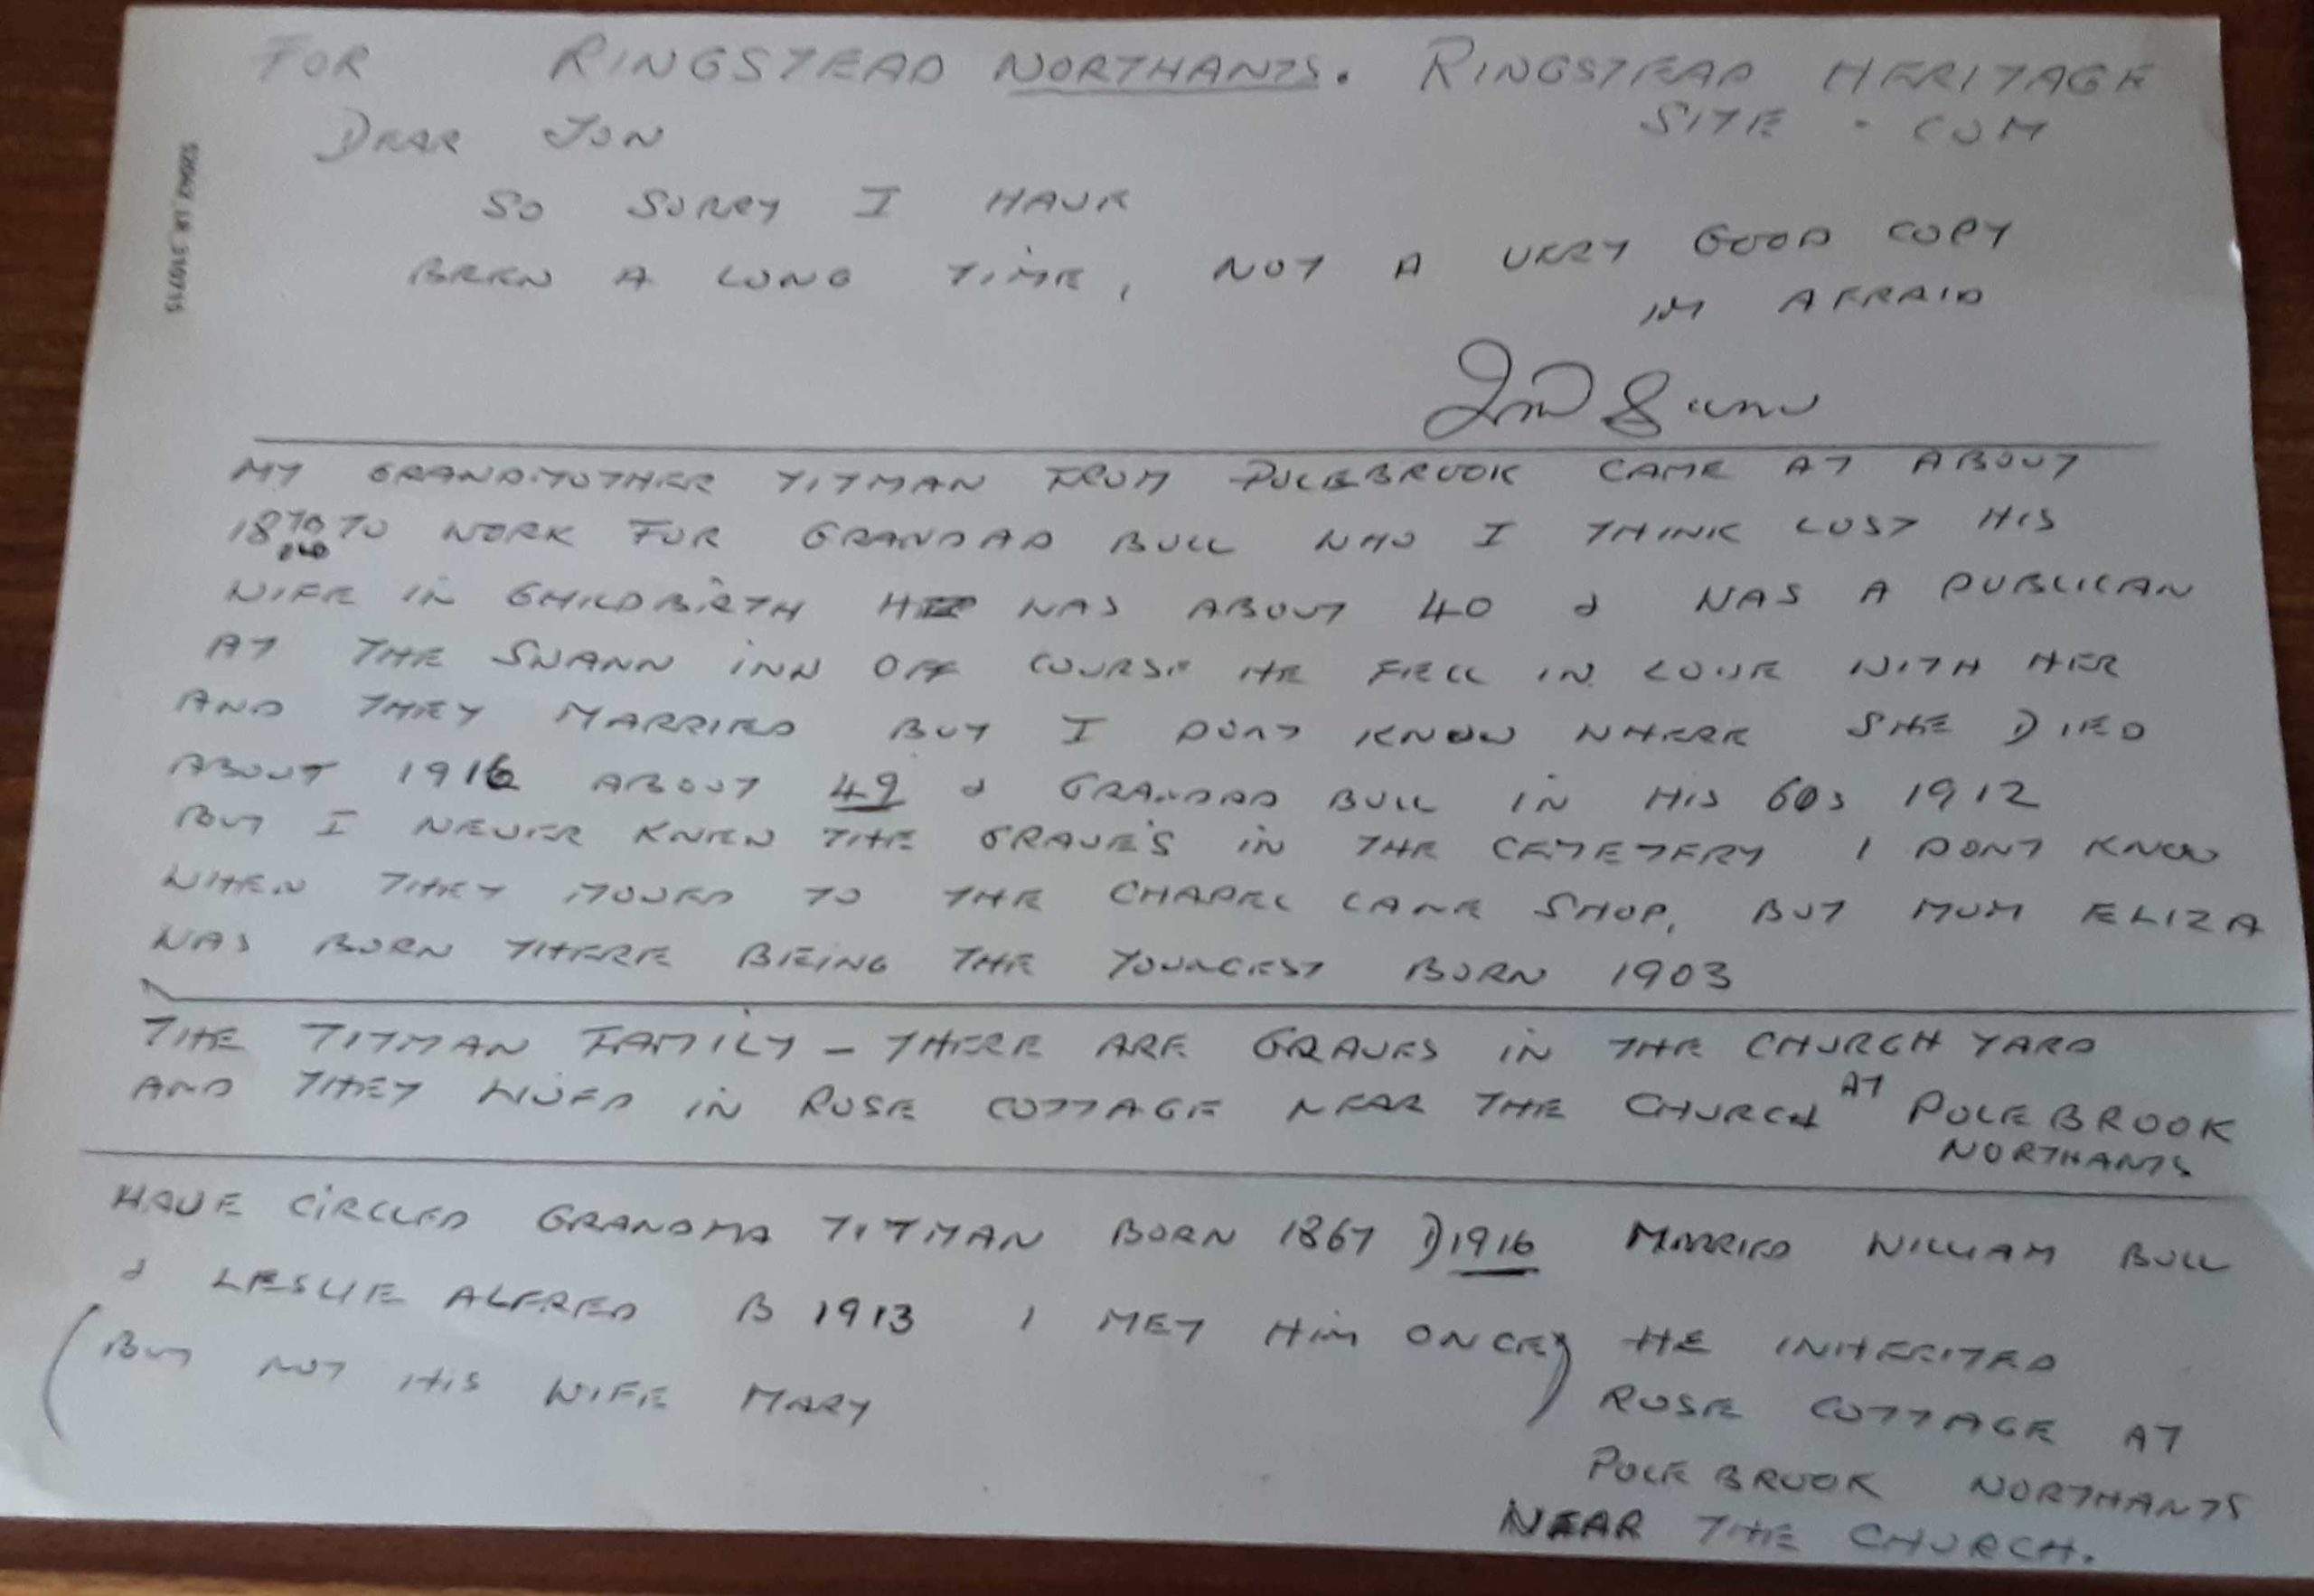 FOR RINGSTEAD NORTHANTS. RINGSTEAD HERITAGE
SITE . COM
DEAR JON
SO SORRY I HAVE
BEEN A LONG TIME, NOT A VERY GOOD COPY
IM AFRAID
MY GRANDMOTHER TITMAN FROM POLEBROOK CAME AT ABOUT
1870 TO WORK FOR GRANDAD BULL WHO I THINK LOST HIS
WIFE IN CHILDBIRTH HE WAS ABOUT 40 & WAS A PUBLICAN
AT THE SWANN INN OFF COURSE HE FELL IN LOVE WITH HER
AND THEY MARRIED BUT I DONT KNOW WHERE SHE DIED
ABOUT 1916 ABOUT 49 & GRANDAD BULL IN HIS 60s 1912
BUT I NEVER KNEW THE GRAVE'S IN THE CEMETERY I DONT KNOW
WHEN THEY MOVED TO THE CHAPEL LANE SHOP, BUT MUM ELIZA
WAS BORN THERE BEING THE YOUNGEST BORN 1903
THE TITMAN FAMILY - THERE ARE GRAVES IN THE CHURCH YARD
AND THEY LIVED IN ROSE COTTAGE NEAR THE CHURCH AT POLEBROOK
NORTHANTS
HAVE CIRCLED GRANDMA TITMAN BORN 1867 D 1916 MARRIED WILLIAM BULL
& LESLIE ALFRED B 1913 I MET HIM ONCE) HE INHERITED
(BUT NOT HIS WIFE MARY) ROSE COTTAGE AT
POLE BROOK NORTHANTS
NEAR THE CHURCH.